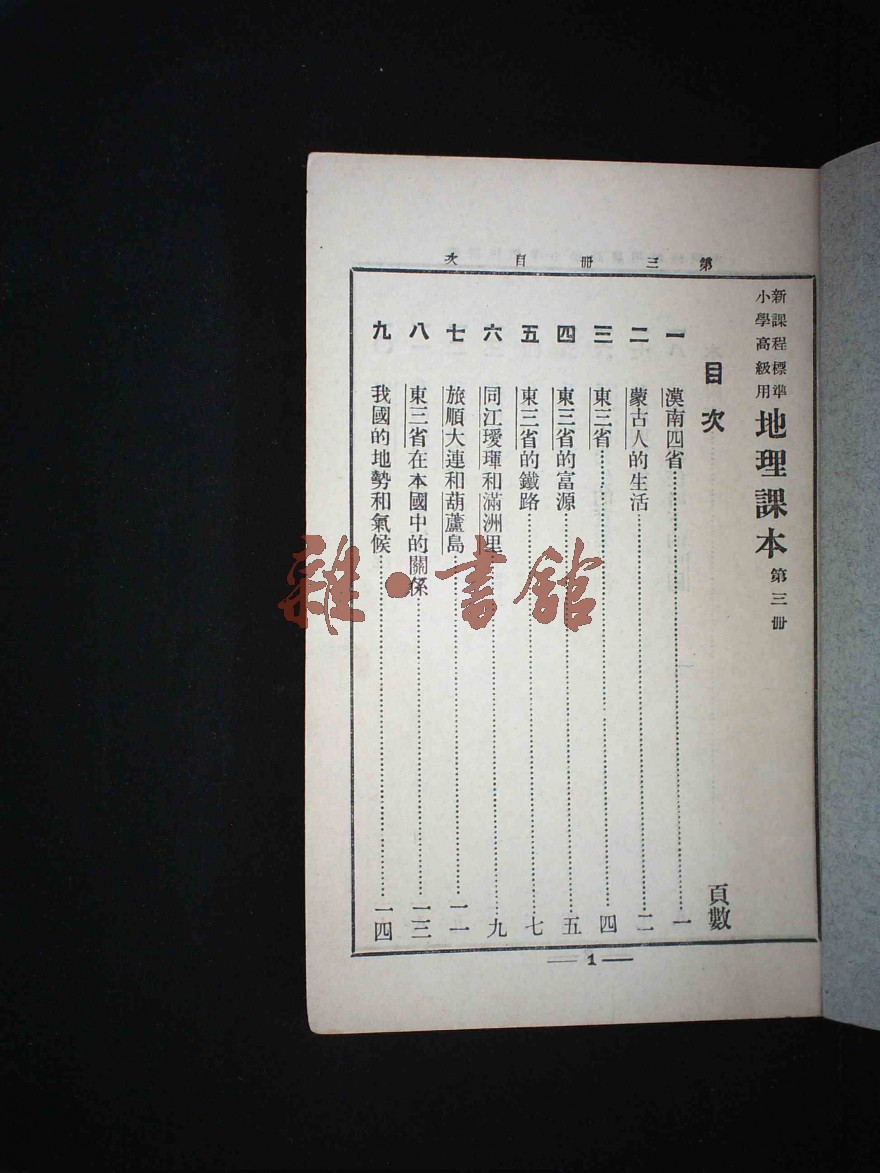 第三冊目次
新課程標準
小學高級用
地理課本 第三冊
目次 頁數
一 漠南四省 一
二 蒙古人的生活 二
三 東三省 四
四 東三省的富源 五
五 東三省的鐵路 七
六 同江璦琿和滿洲里 九
七 旅順大連和葫蘆島 一一
八 東三省在本國中的關係 一三
九 我國的地勢和氣候 一四
1
雜·書館